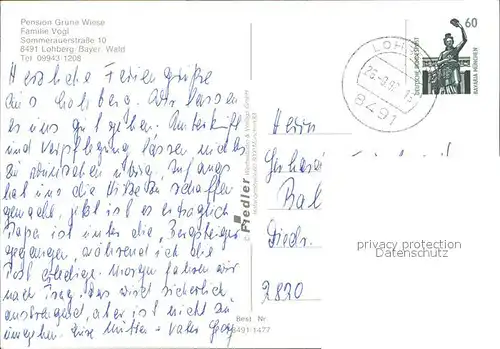 Pension Grüne Wiese
Familie Vogl
Sommerauerstraße 10
8491 Lohberg Bayer. Wald
Tel. 09943 1208
Herzliche Feriengrüße
aus Lohberg. Wir lassen
es uns gut gehen, Unterkunft
und Verpflegung lassen nichts
zu wünschen übrig. Anfangs
hat uns die Hitze zu schaffen
gemacht, jetzt ist es erträglich
Papa ist unter die "Bergsteiger"
gegangen, während ich die
Post erledige. Morgen fahren wir
nach Prag, das wird sicherlich
anstrengend, aber ist nicht zu
umgehen. Eure Mutter + Vater Georg
Fiedler
Best Nr
8491/1477
LOH
8491
DEUTSCHE BUNDESPOST
60
BAVARIA MÜNCHEN
Herrn
Gerhard
Bal
2820
privacy protection
Datenschutz